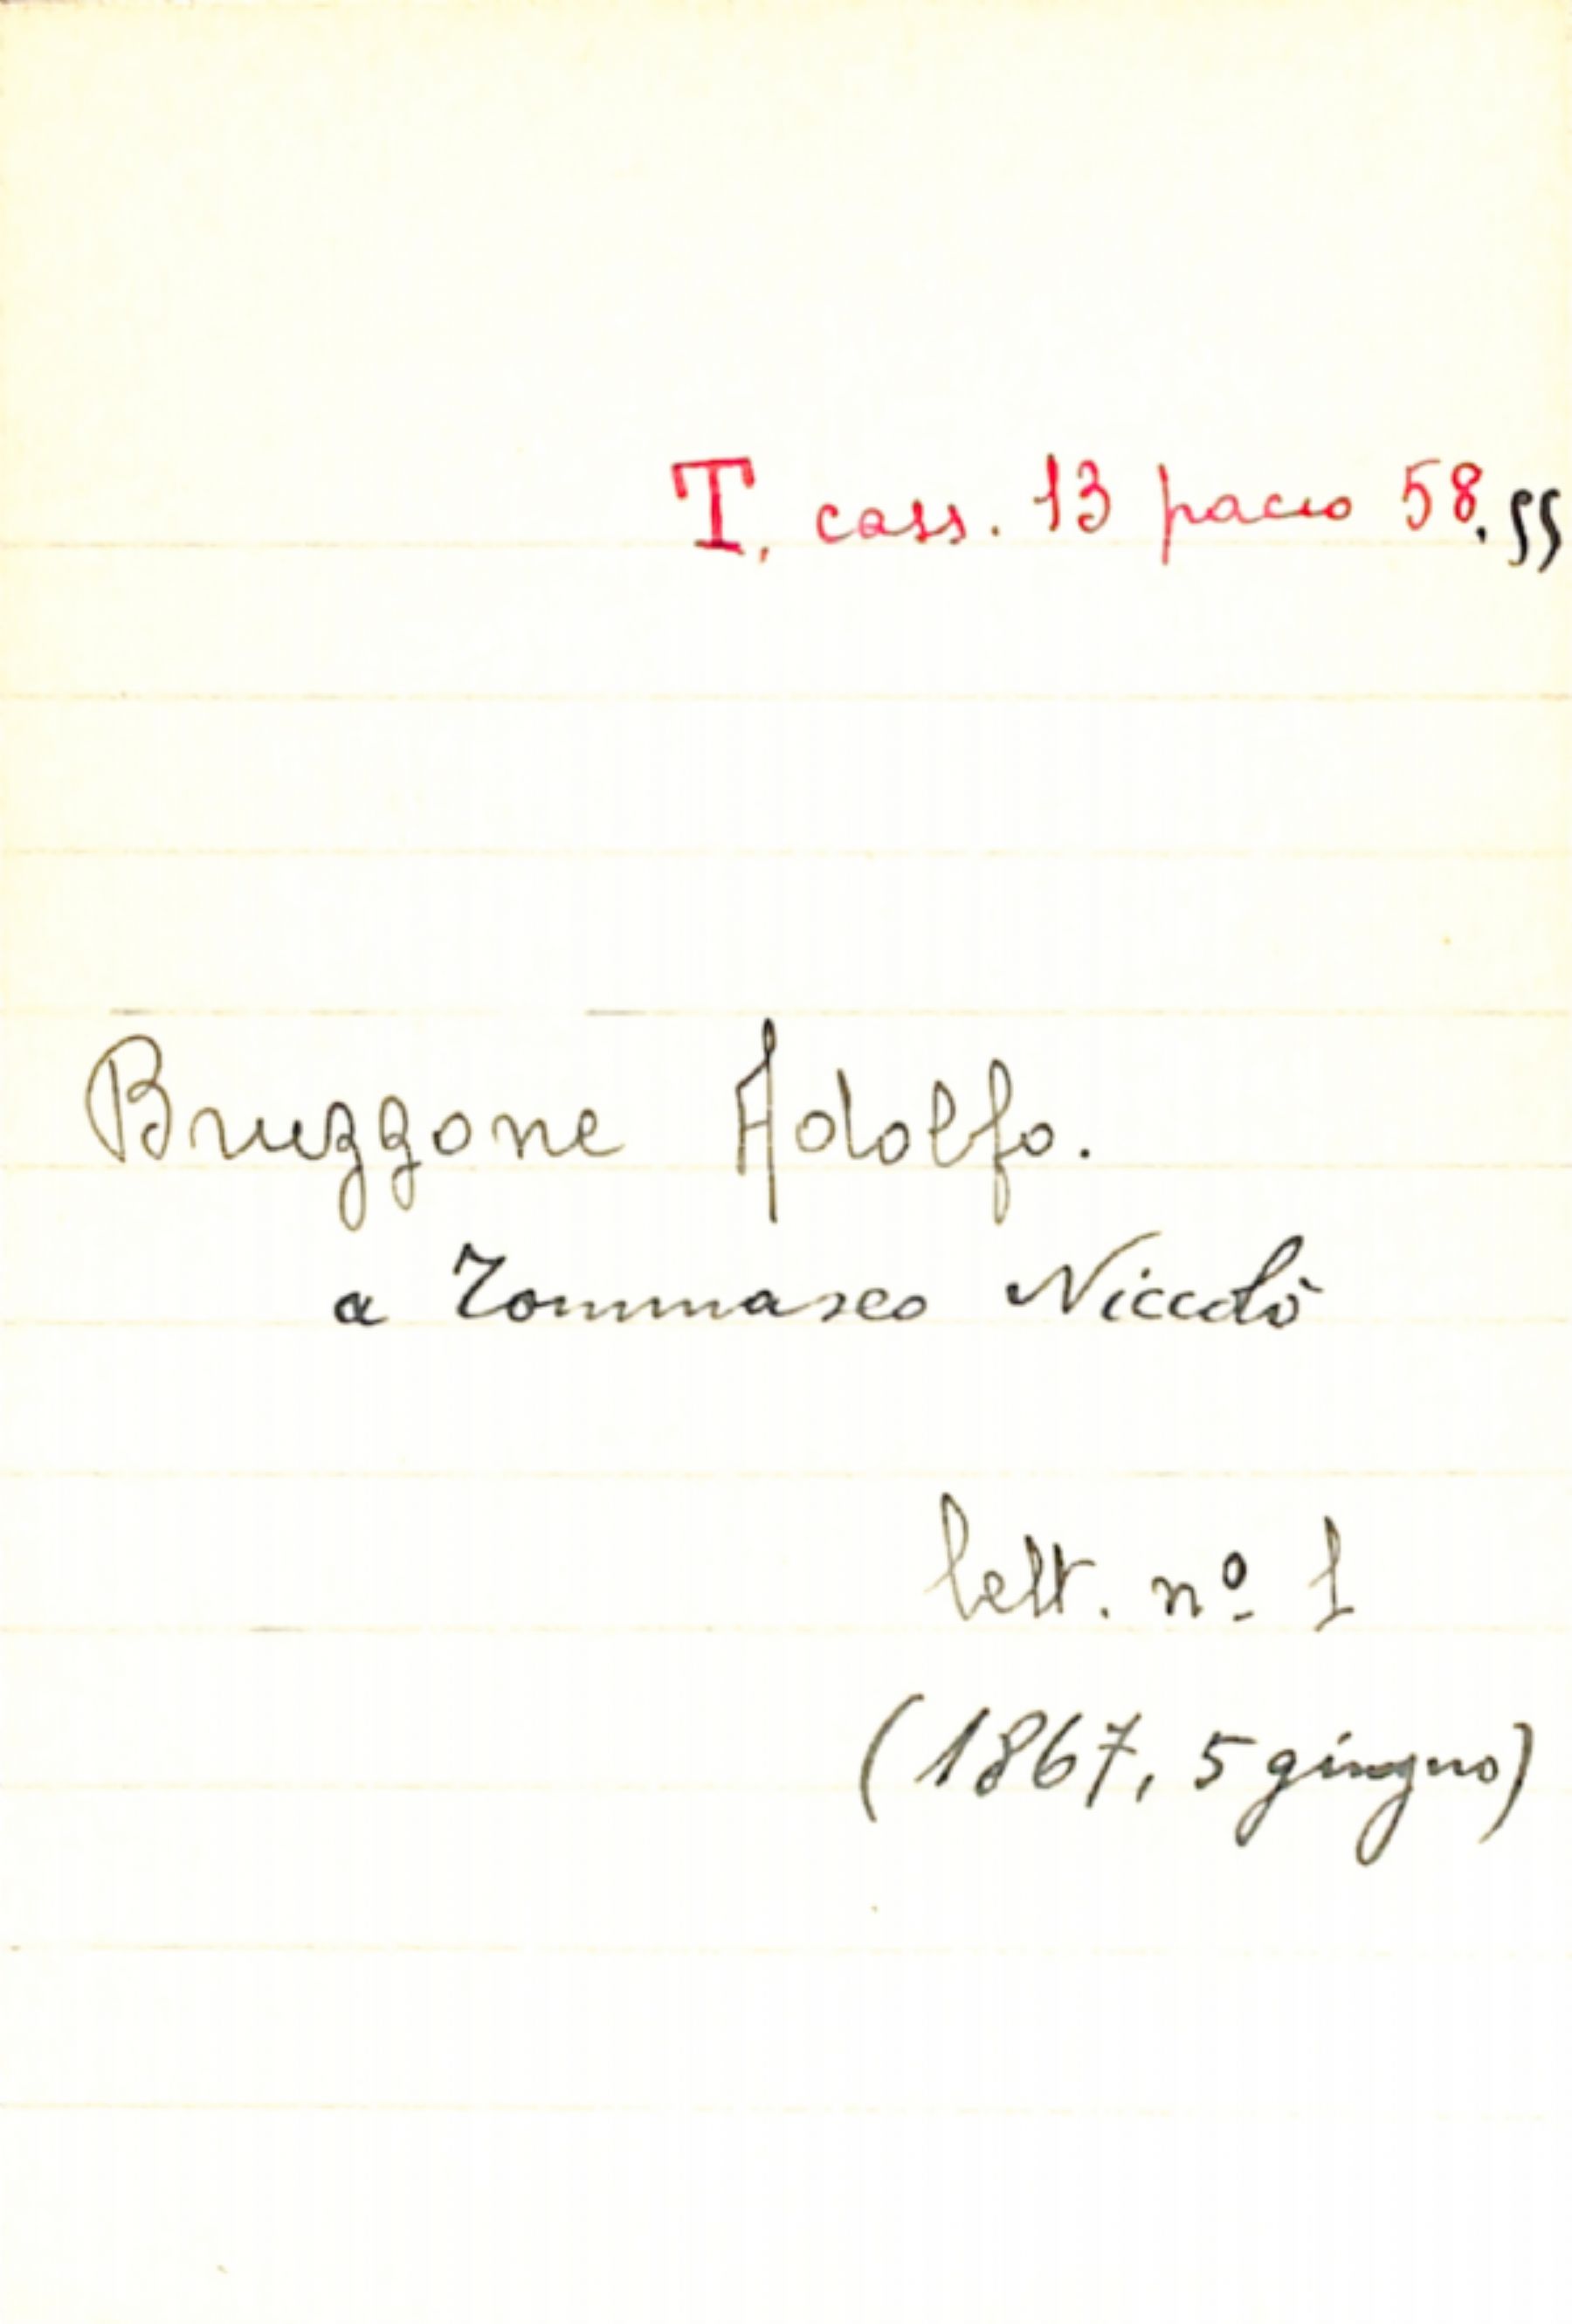 T. cass. 13 pacco 58.55
Bruzzone Adolfo.
a Tommaseo Niccolò
lett. nº 1
(1867, 5 giugno)